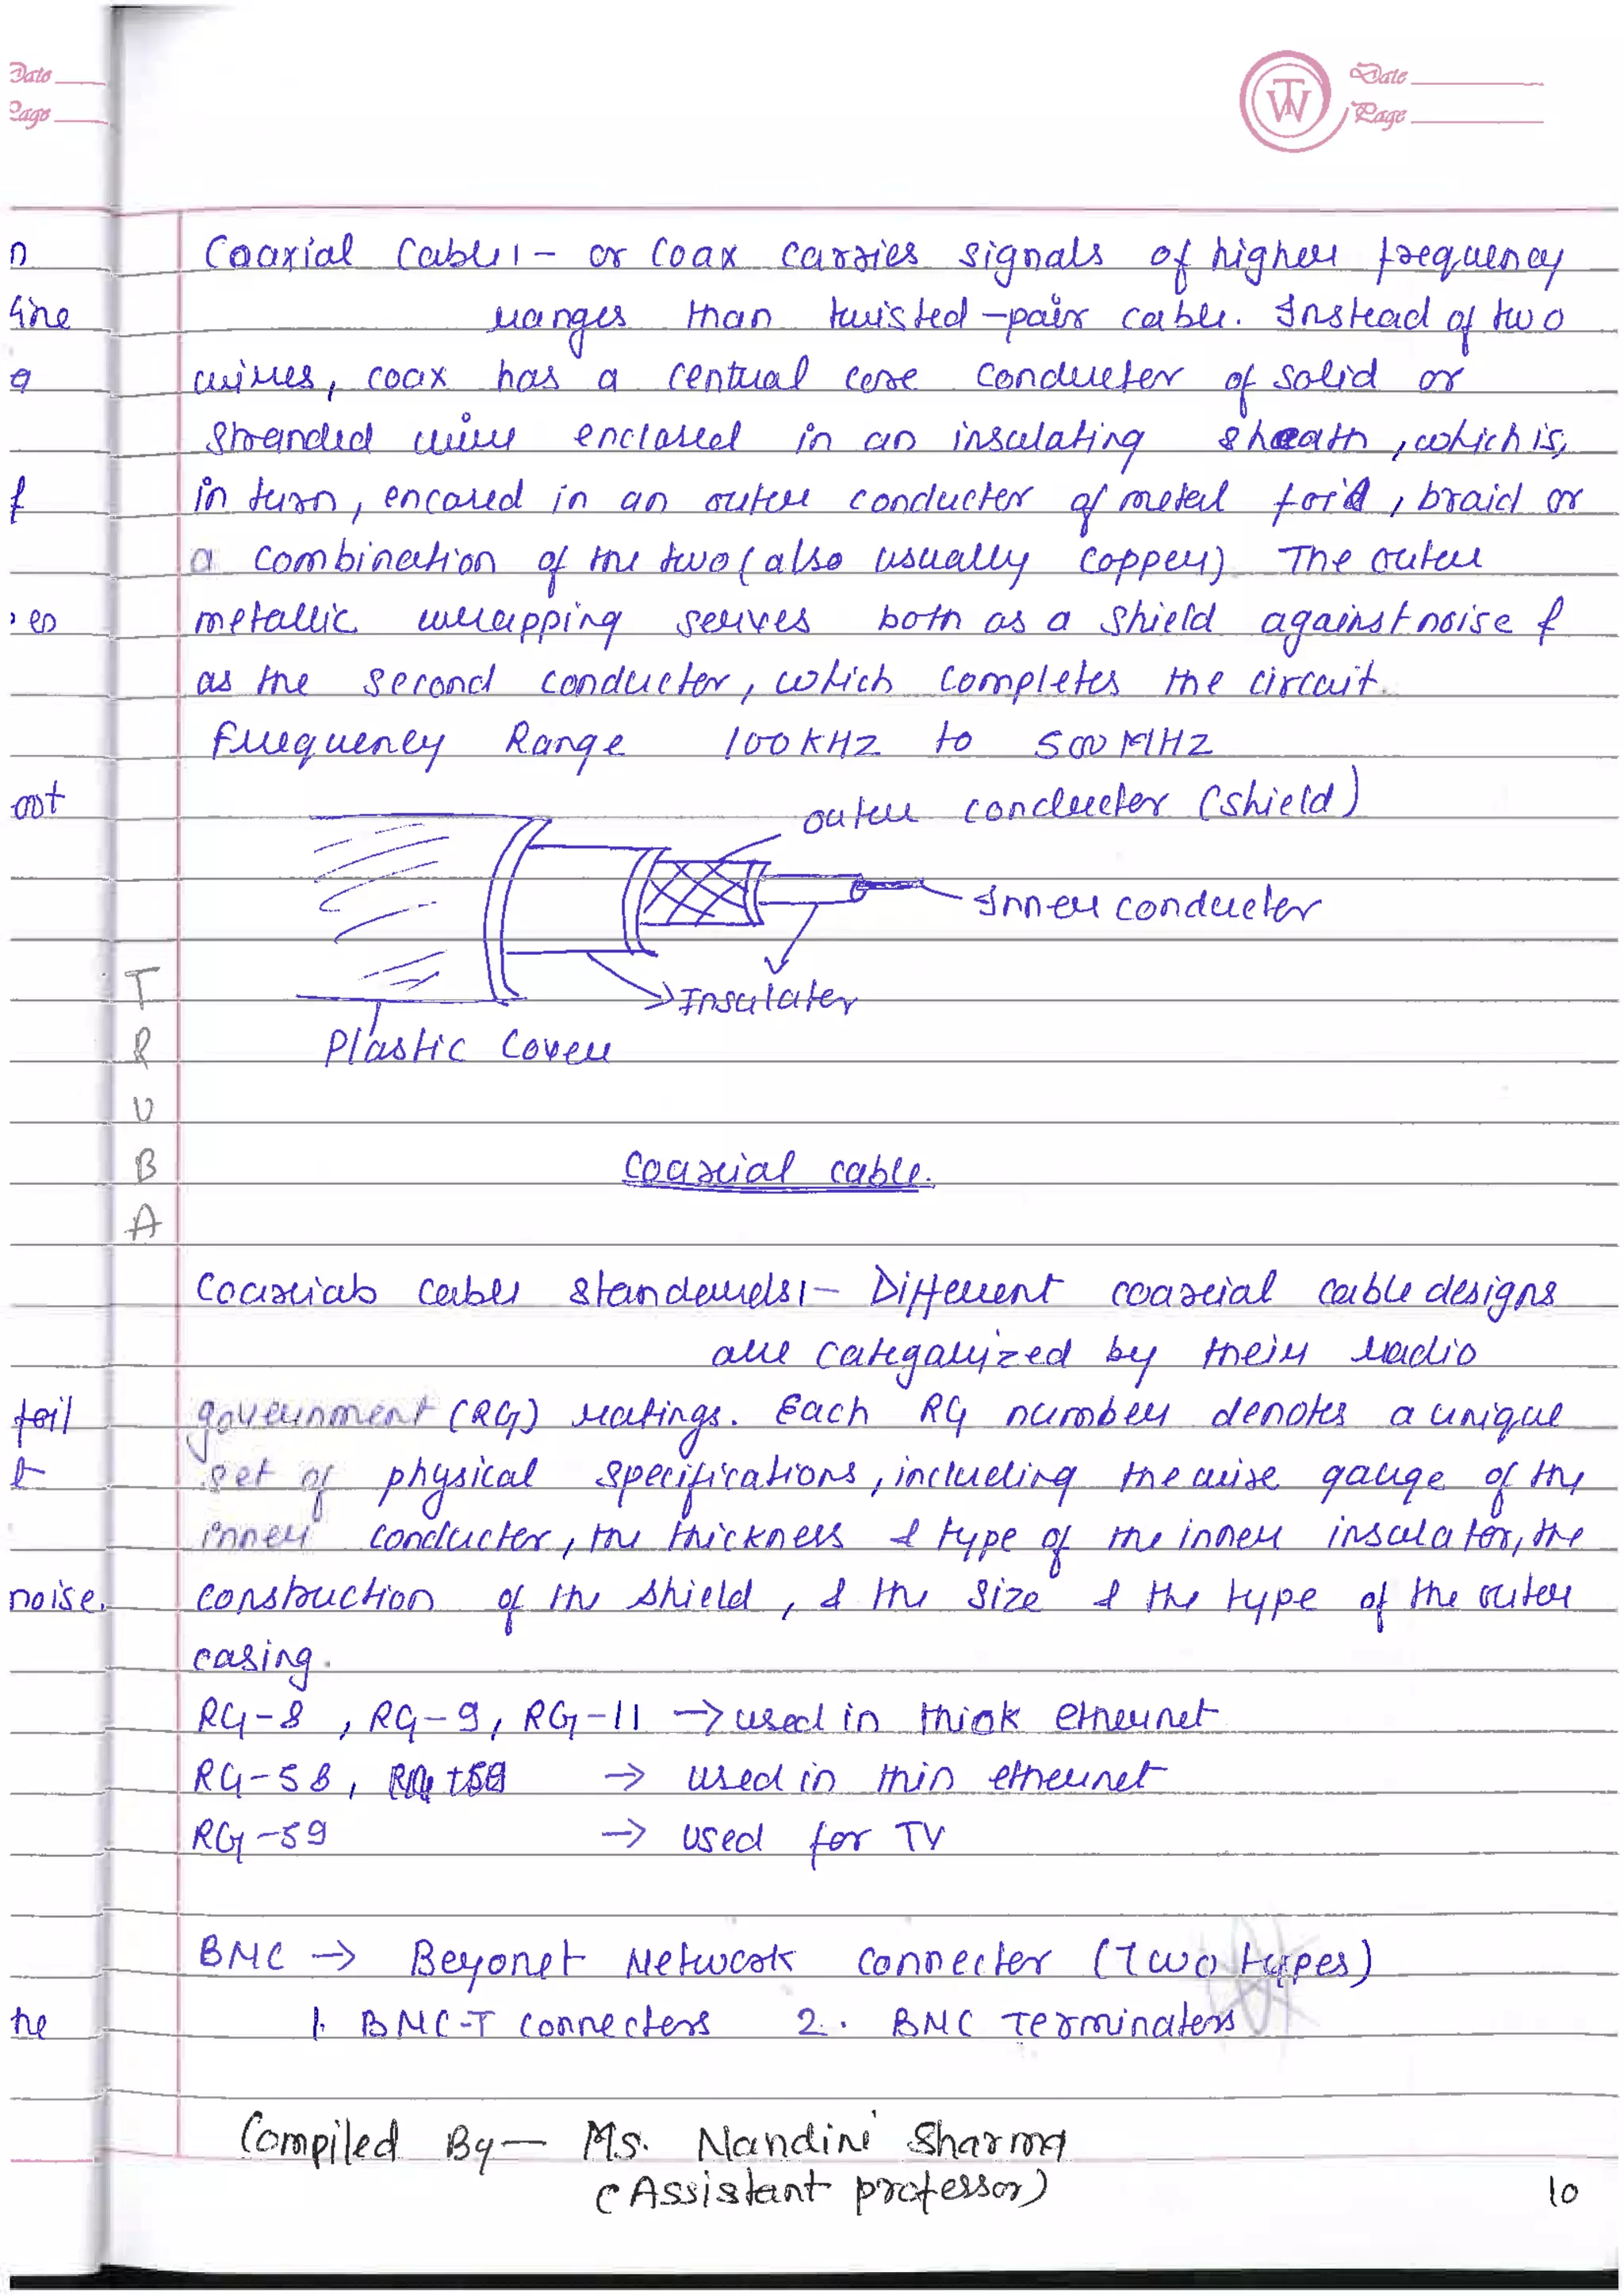 Date
Page
TW
Date
Page
n
line
a
f
es
oot
foil
t
noise.
he
Coaxial Cable :- or Coax carries signals of higher frequency
ranges than twisted-pair cable. Instead of two
wires, coax has a central core conductor of solid or
stranded wire enclosed in an insulating sheath, which is,
in turn, encased in an outer conductor of metal foil, braid or
a combination of the two (also usually copper) The outer
metallic wrapping serves both as a shield against noise &
as the second conductor, which completes the circuit.
Frequency Range 100 KHz to 500 MHz
outer conductor (shield)
Inner conductor
Insulater
Plastic Cover
T
R
U
B
A
Coaxial cable.
Coaxial cable standards :- Different coaxial cable designs
are categorized by their radio
government (RG) ratings. Each RG number denotes a unique
set of physical specifications, including the wire gauge of the
inner conductor, the thickness & type of the inner insulator, the
construction of the shield, & the size & the type of the outer
casing.
RG-8, RG-9, RG-11 → used in thick ethernet
RG-58, → used in thin ethernet
RG-59 → used for TV
BNC → Beyonet Network connecter (Two types)
1. BNC-T connecters 2. BNC Terminaters
Compiled By — Ms. Nandini Sharma
(Assistant professor)
10